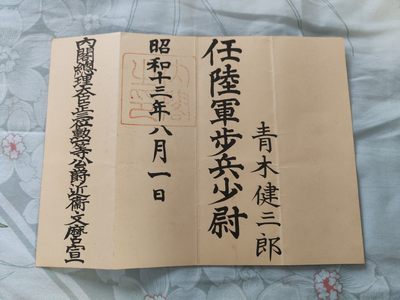 青木健三郎
任陸軍歩兵少尉
昭和十三年八月一日
內閣總理大臣正三位勲一等公爵近衞文麿宣